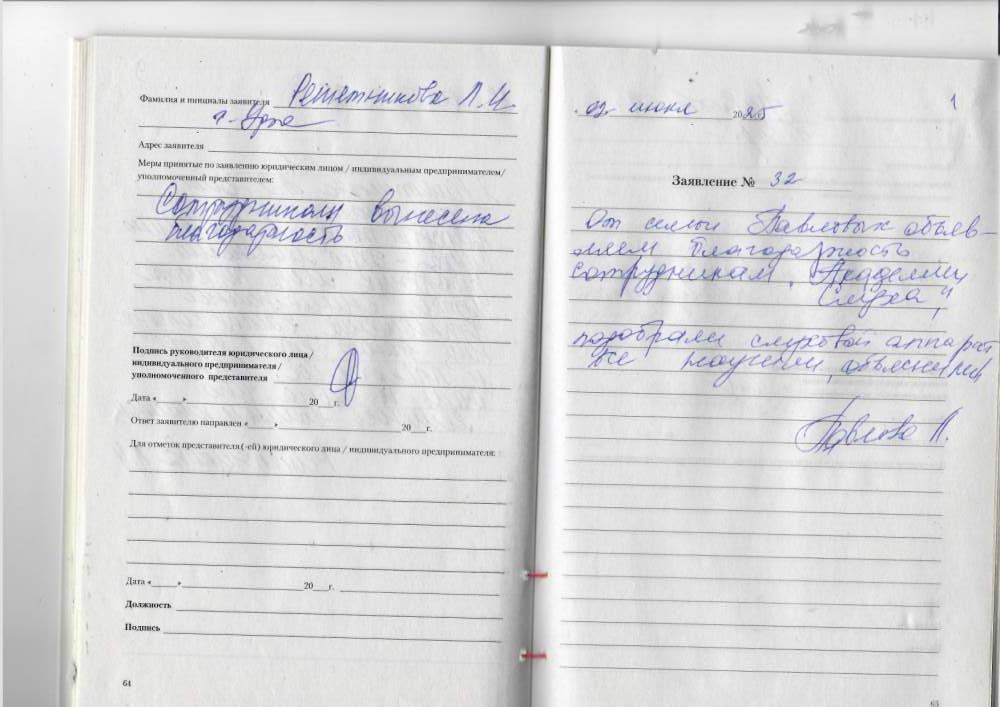 Фамилия и инициалы заявителя Решетникова Л.И.
г. Уфа
Адрес заявителя
Меры принятые по заявлению юридическим лицом / индивидуальным предпринимателем/
уполномоченный представителем:
Сотрудникам вынесена
благодарность
Подпись руководителя юридического лица /
индивидуального предпринимателя /
уполномоченного представителя
Дата «____»____ 20___г.
Ответ заявителю направлен «____»____ 20___г.
Для отметок представителя(-ей) юридического лица / индивидуального предпринимателя:
Дата «____»____ 20___г.
Должность
Подпись
64
02 июня 2025
1
Заявление № 32
От семьи Павловых объяв-
ляем благодарность
сотрудникам „Академии
Слуха"
подобрали слуховой аппарат
все научили, объяснили
Павлова Н.
65